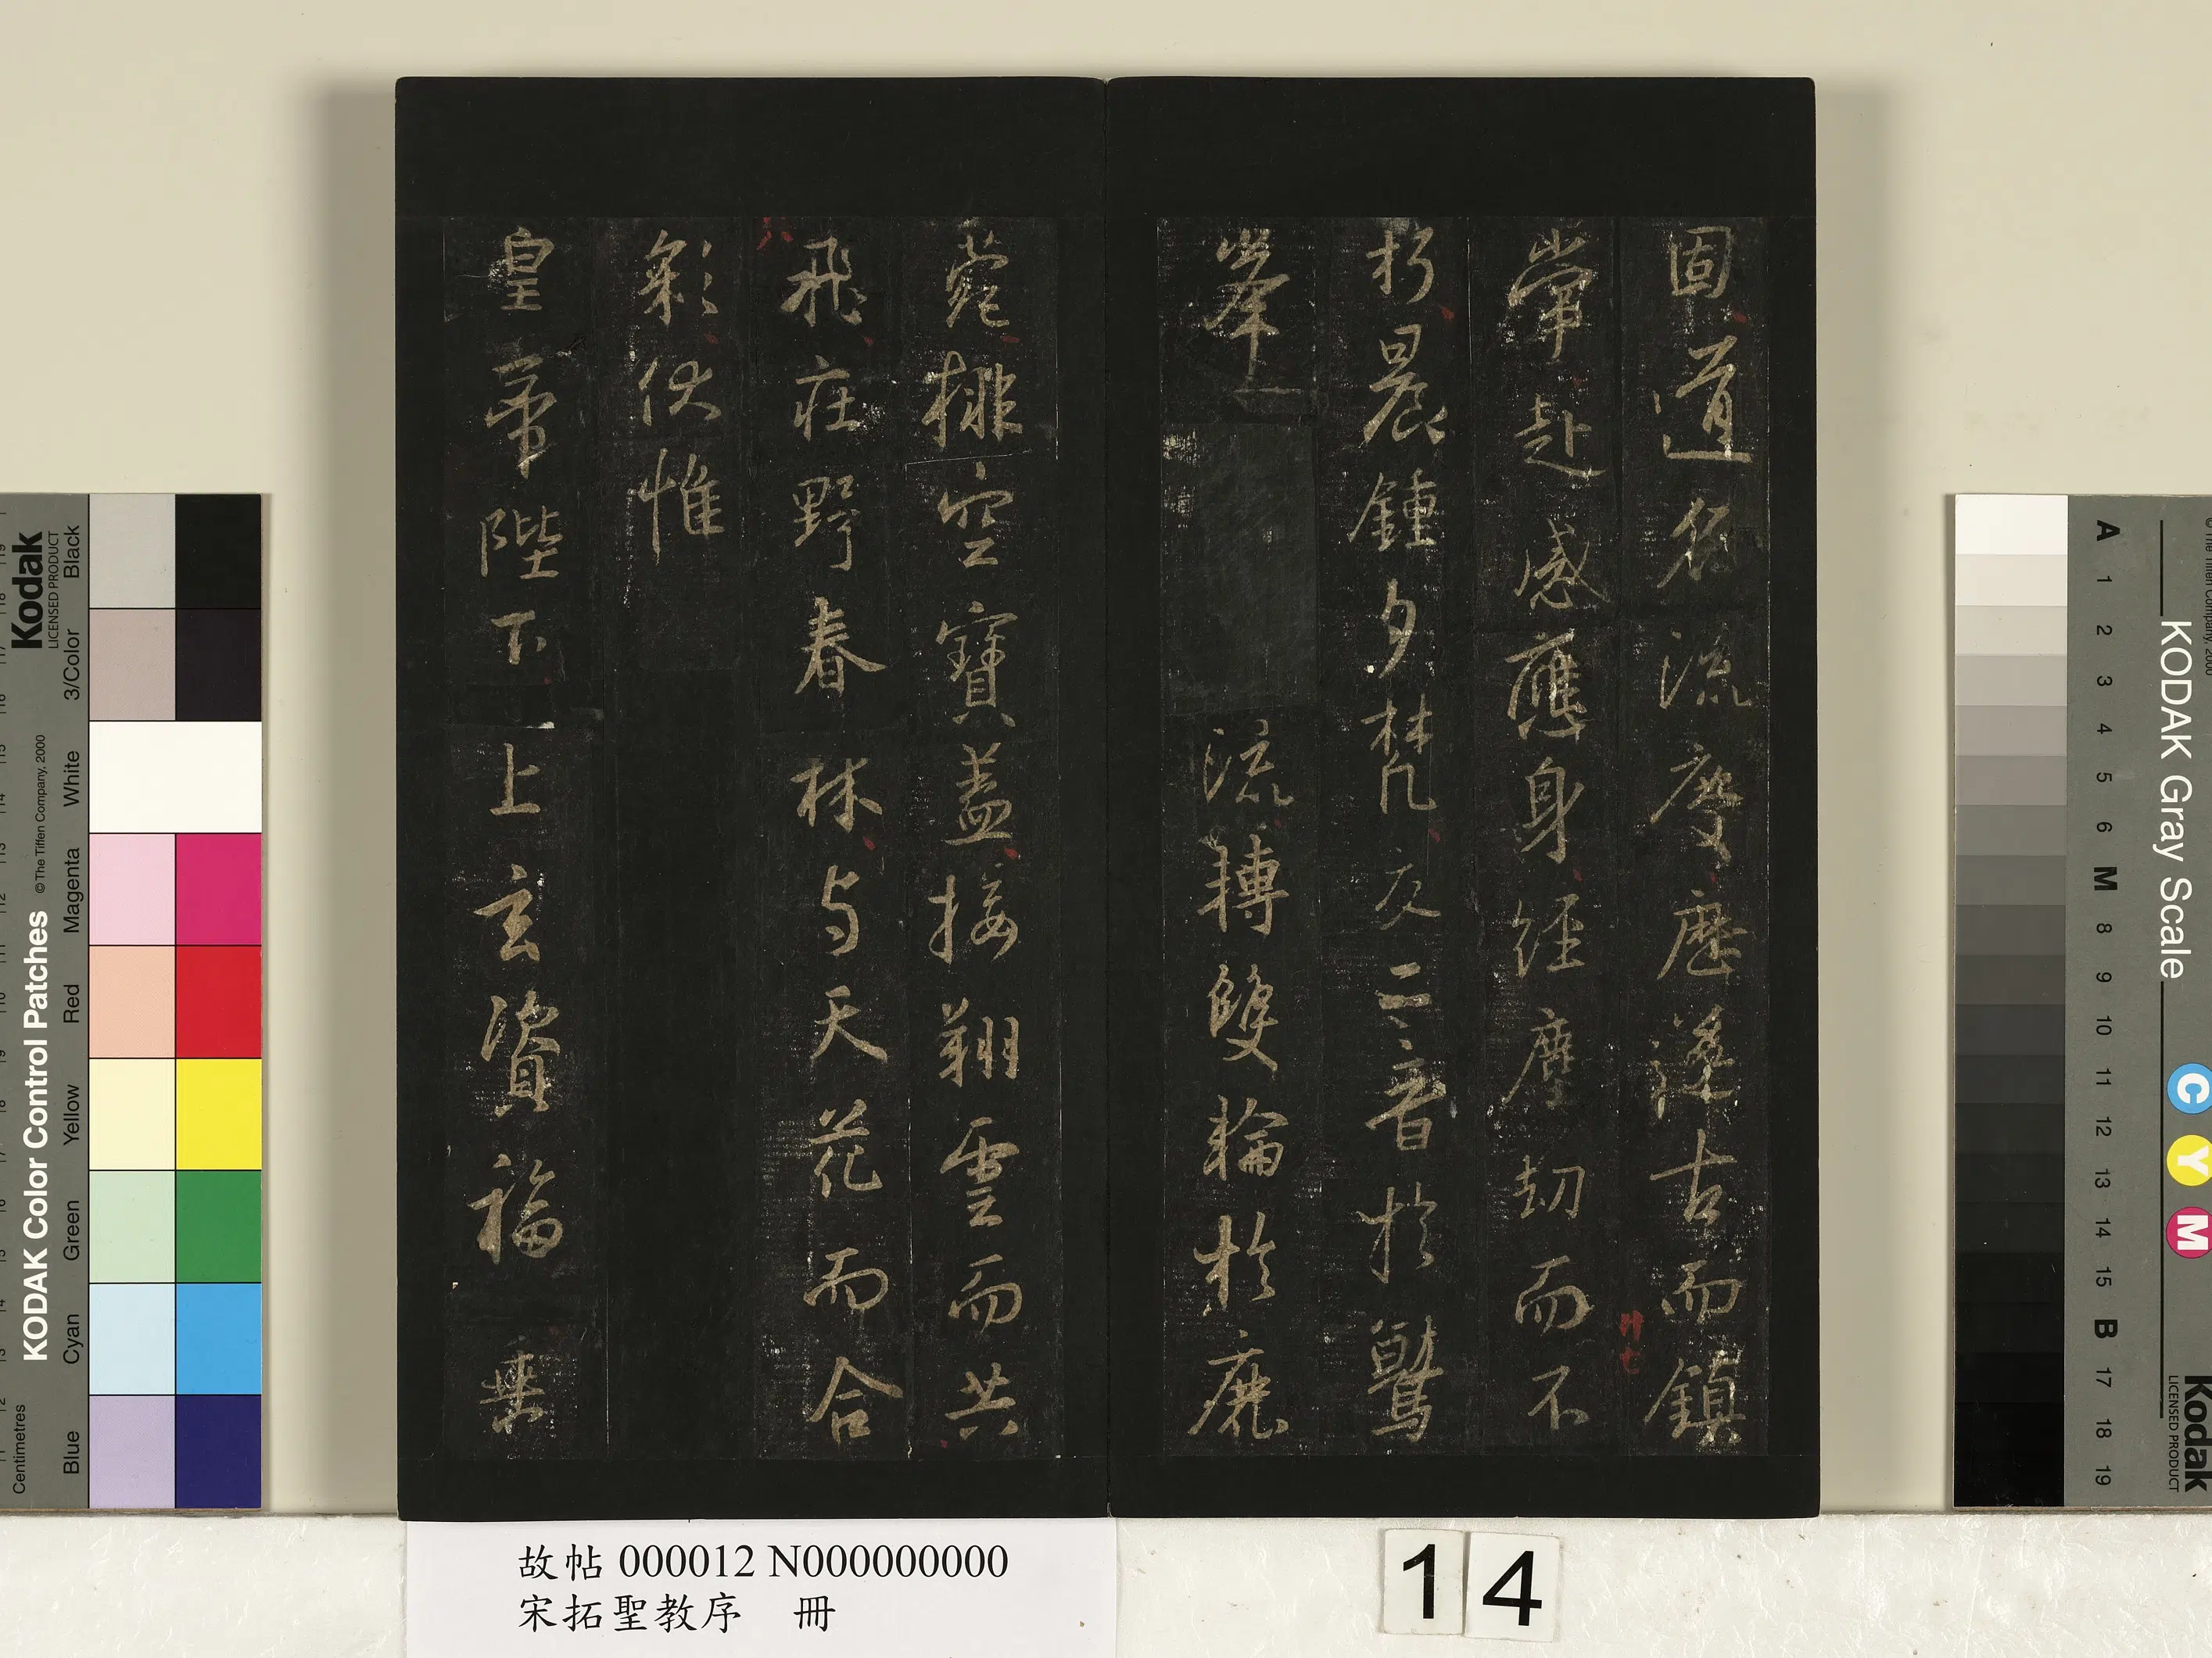 固道名流慶歷遂古而鎮
常赴感應身經塵劫而不
朽晨鍾夕梵交二音於鷲
峯流轉雙輪於鹿
菀排空寶蓋接翔雲而共
飛莊野春林与天花而合
彩伏惟
皇帝陛下上玄資福垂
故帖 000012 N000000000
宋拓聖教序 冊
14
KODAK Color Control Patches
© The Tiffen Company, 2000
Kodak
LICENSED PRODUCT
Centimetres
Blue
Cyan
Green
Yellow
Red
Magenta
White
3/Color
Black
KODAK Gray Scale
C Y M
Kodak
LICENSED PRODUCT
A 1 2 3 4 5 6 M 8 9 10 11 12 13 14 15 B 17 18 19